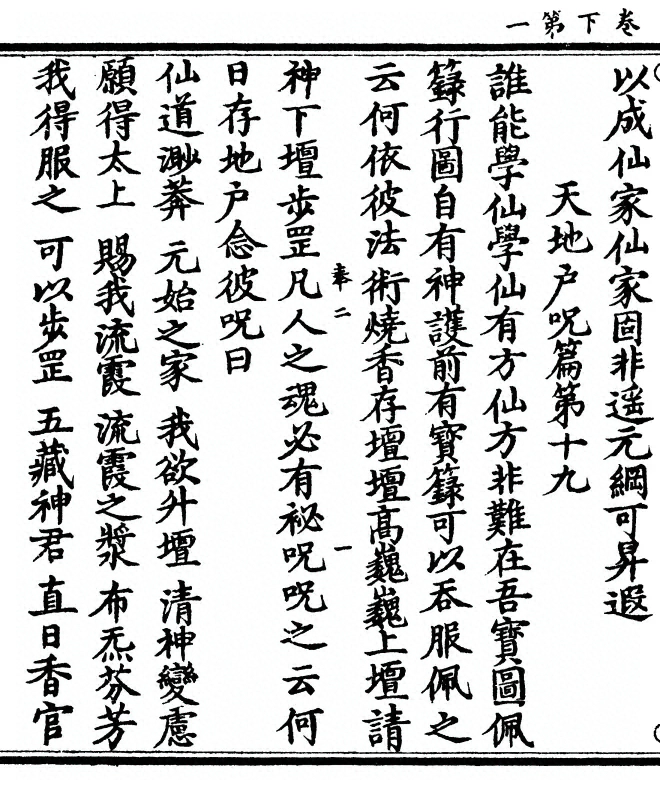 卷下第一
以成仙家仙家固非遥元綱可昇遐
天地户呪篇第十九
誰能學仙學仙有方仙方非難在吾寶圖佩
籙行圖自有神護前有寶籙可以吞服佩之
云何依彼法術燒香存壇壇高巍巍上壇請
奉二 一
神下壇步罡凡人之魂必有祕呪呪之云何
日存地户念彼呪曰
仙道渺莽 元始之家 我欲升壇 清神變慮
願得太上 賜我流霞 流霞之漿 布炁芬芳
我得服之 可以步罡 五藏神君 直日香官